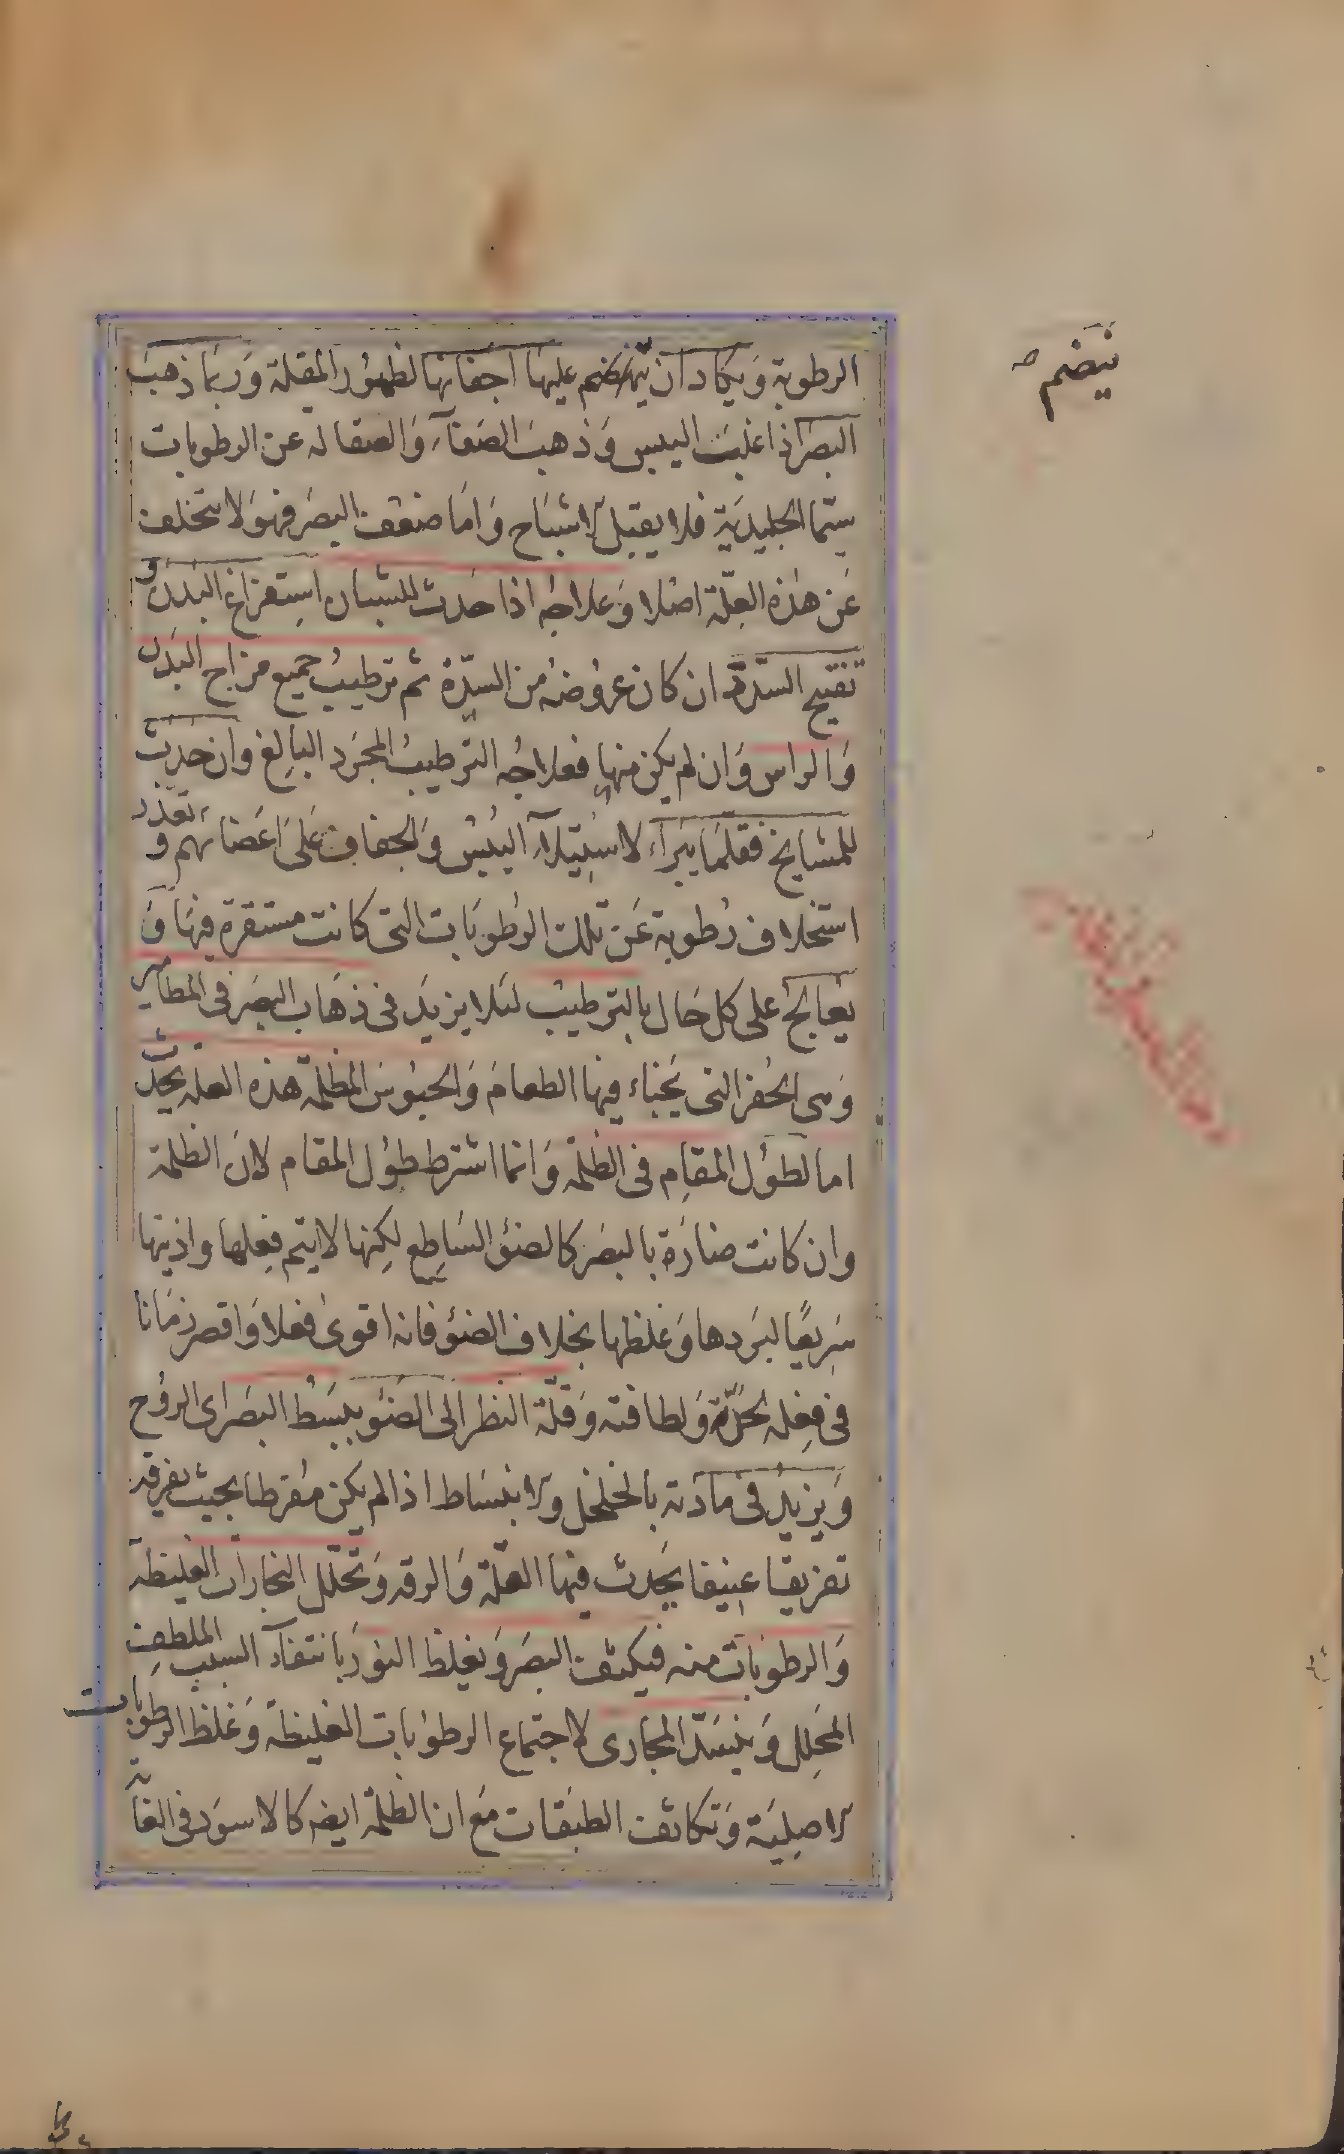 الرطوبة وَيَكاد ان ينضم عليهَا اجفانها لظهُور المقلة وَربمَا ذهبَ
البصَر اذا غلبَت اليبس وَذهبَ الصَفآء وَالصقاله عن الرطوبات
سيّما الجليديّة فلا يقبل الاشبَاح وَامَا ضعف البصَر فهوَ لا يتخلف
عَن هذه العلّة اصْلا وَعلاجه اذا حَدث للشبان استفراغ البَدن و
تفتيح السّدة ان كان عروضه من السّدّة ثم ترطيب جميع مزاج البَدن
وَالراس وَان لم يكن منها فعلاجُه الترطيبُ المجَرد البَالغ وان حَدث
للمشايخ فقلّمَا يبَرآء لاسْتيلآء اليُبْس وَالجفاف عَلى اعَضائهم وَ تعذر
استخلاف رُطوبة عَن تلك الرُطوبَات التى كانت مستقرة فيهَا وَ
يعَالجُ على كل حَال بالترطيب لئلا يزيَد فى ذهَاب البصَر فى المطامير
وَهى الحُفر التى يُخبَاء فيها الطعامَ وَالحبُوسَ المظلمة هذه العلة يحدث
اما لطوُل المقام فى الظلمة وَانما اشترط طوُل المقام لانَ الظلمة
وان كانت ضارَة بالبصَر كالضوُ السَاطع لكِنها لا يتم فِعلها واذيتها
سَريعًا لبَردها وَغلظها بخلاف الضوُ فانه اقوىٰ فعلا وَاقصر زمَانا
فى فِعله لحَرّه وَلطافته وَقلّة النظر الى الضوُ يبسُط البصَر اى الروُح
وَيزيدُ فى مادّته بالتخلخل والانبسَاط اذا لم يكن مفرطا بحيث يفرقه
تفريقا عنيفا يحَدث فيها القلّة وَالرقه وَتحَلّل البخارات الغليظة
وَالرطوبات منه فيكثف البصَر وَيغلظ النورَ بانتفآء السبَب الملطف
المحَلِل وَينسَدّ المجَارى لاجتماع الرطوُبات الغليظة وَغلظ الرطوبات
الاصليَة وَتكاثف الطبَقات مَع ان الظلمة ايضه كالاسوَد فى الغآية
ينضم صح